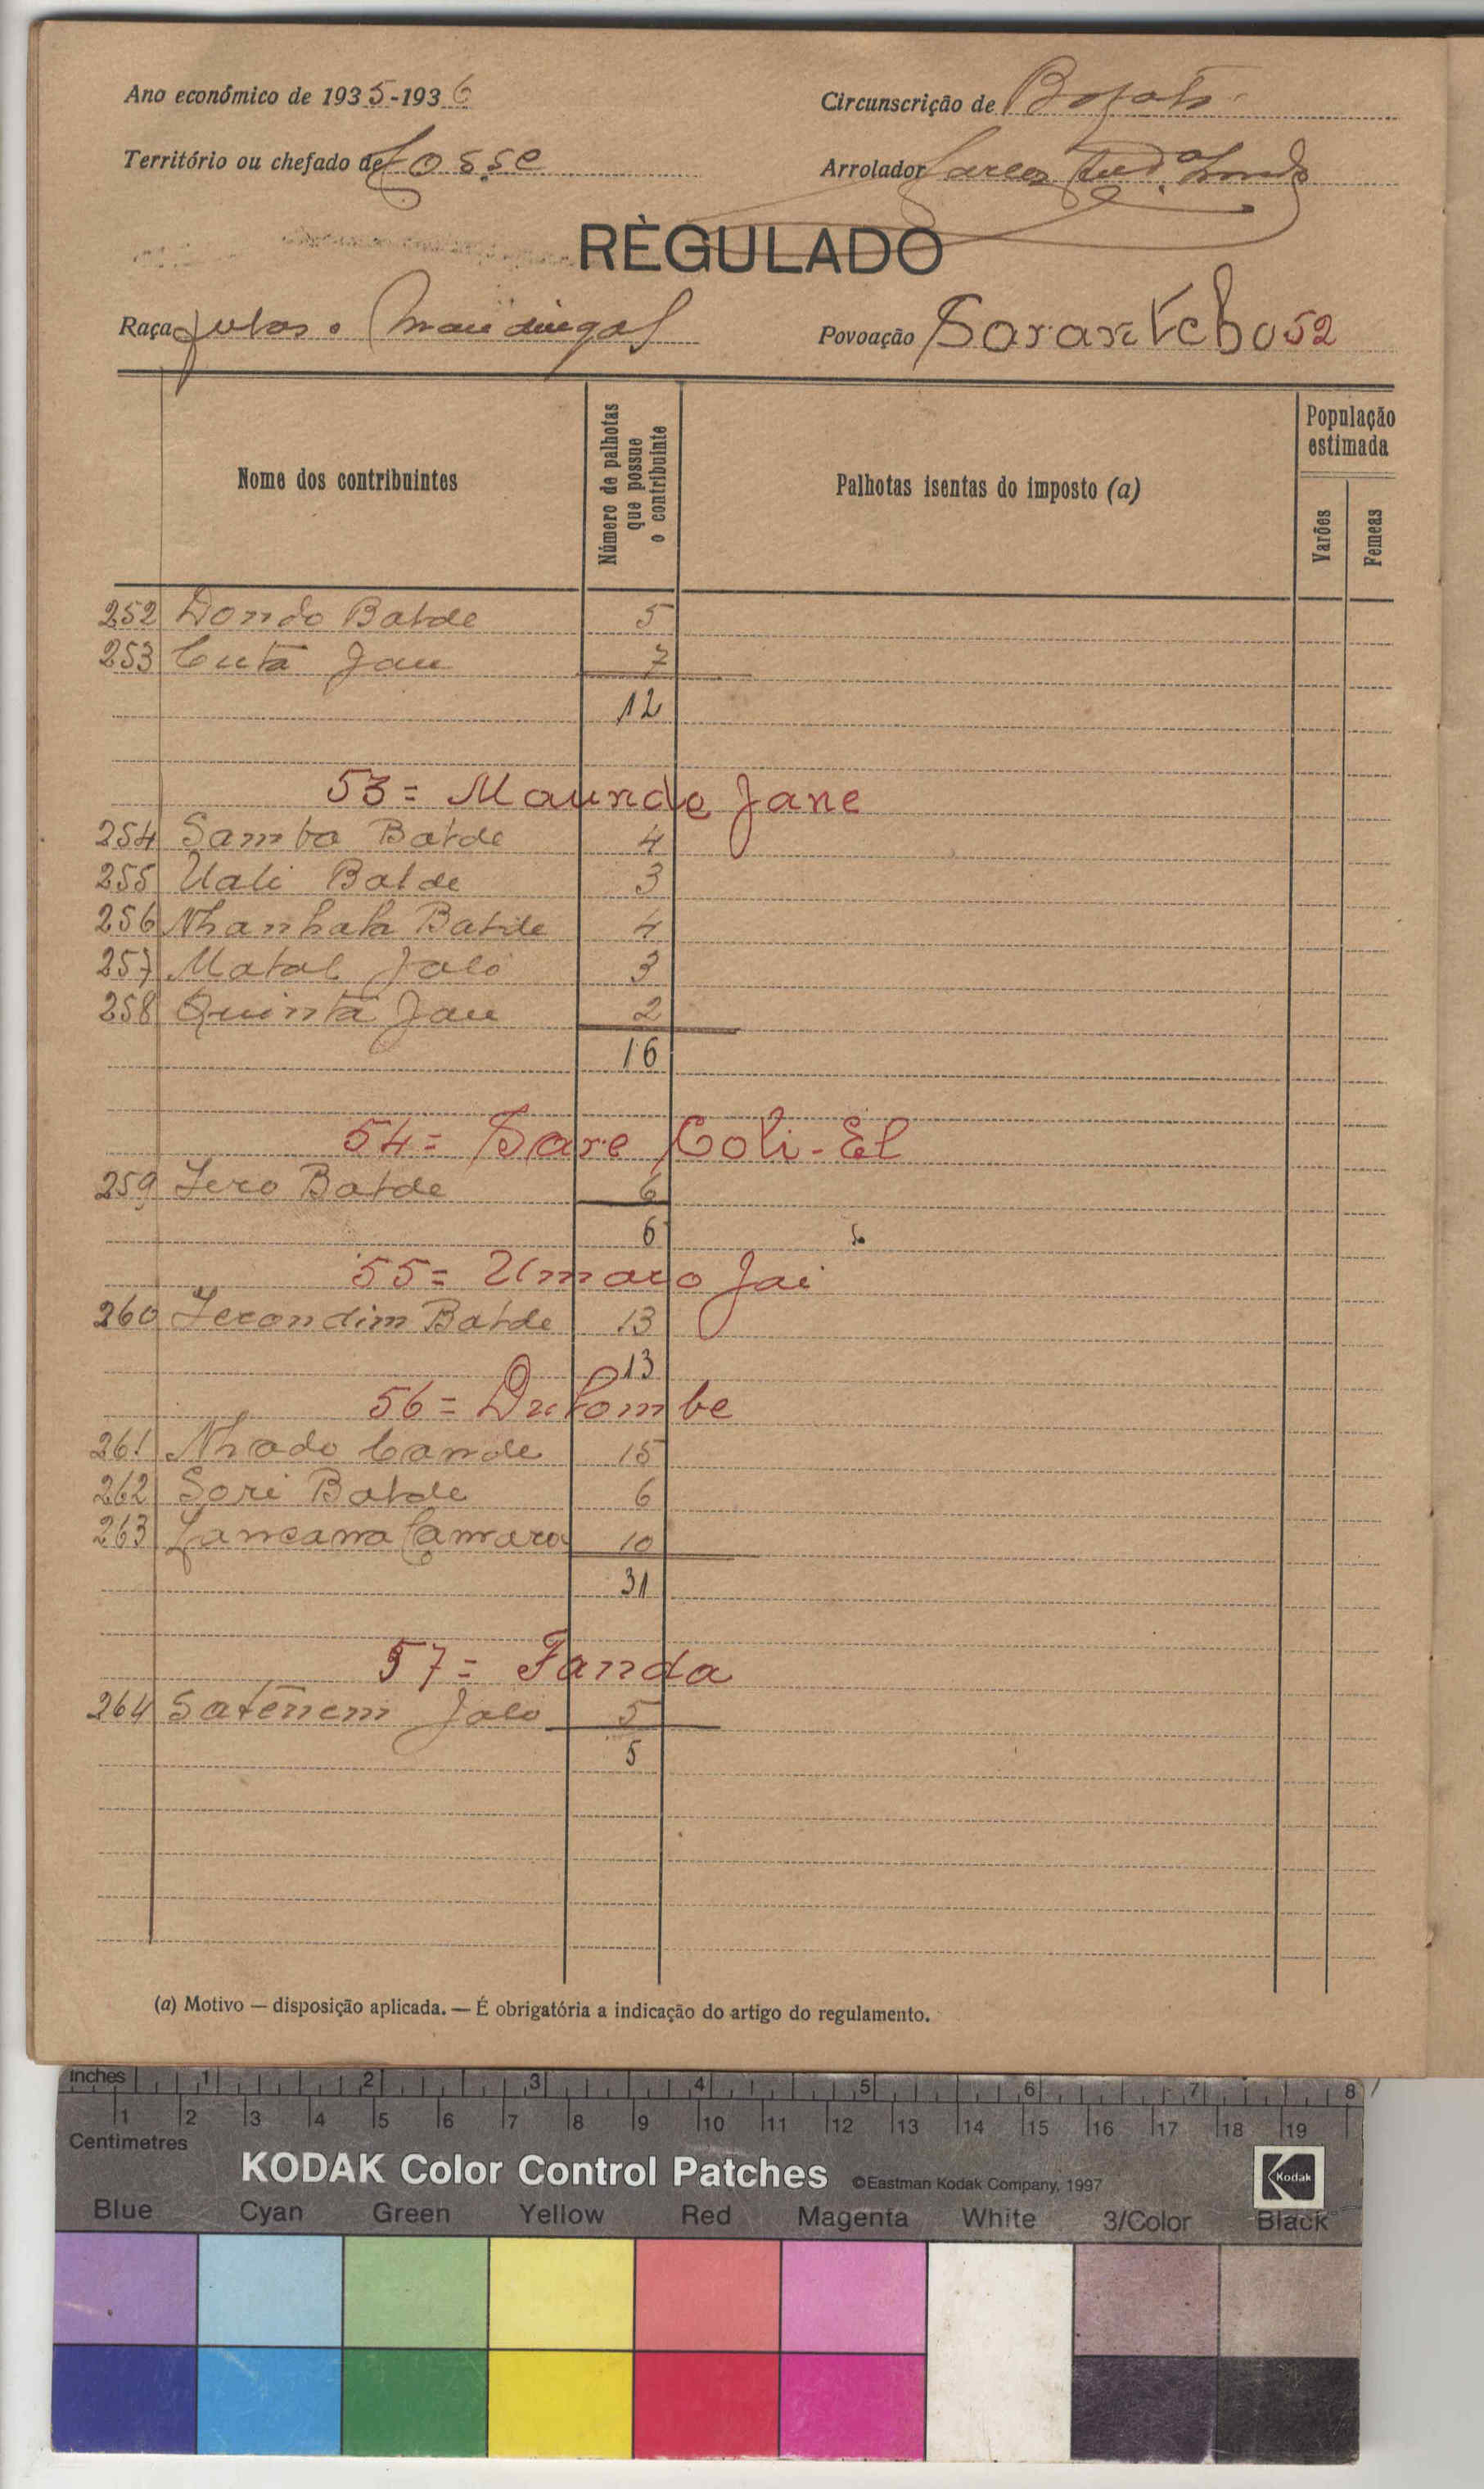 Ano económico de 1935-1936
Circunscrição de Bafatá
Território ou chefado de Cossé
Arrolador
RÈGULADO
Raça fulas e mandingas
Povoação 52
Nome dos contribuintes
Número de palhotas que possue o contribuinte
Palhotas isentas do imposto (a)
População estimada
Varões
Femeas
252 Dondo Balde 5
253 Cutá Jau 7
12
53= Maunde Jane
254 Samba Balde 4
255 Uali Balde 3
256 Balde 4
257 Matal Jaló 3
258 Quintá Jau 2
16
54= Sare Coli-El
259 Balde 6
6
55= Umaro Jai
260 Balde 13
13
56= Dulombe
261 Nhado Cande 15
262 Sori Balde 6
263 Camara 10
31
57= Fanda
264 Satenem Jaló 5
5
(a) Motivo — disposição aplicada. — É obrigatória a indicação do artigo do regulamento.
inches 1 2 3 4 5 6 7 8
1 2 3 4 5 6 7 8 9 10 11 12 13 14 15 16 17 18 19
Centimetres
KODAK Color Control Patches ©Eastman Kodak Company, 1997 Kodak
Blue Cyan Green Yellow Red Magenta White 3/Color Black